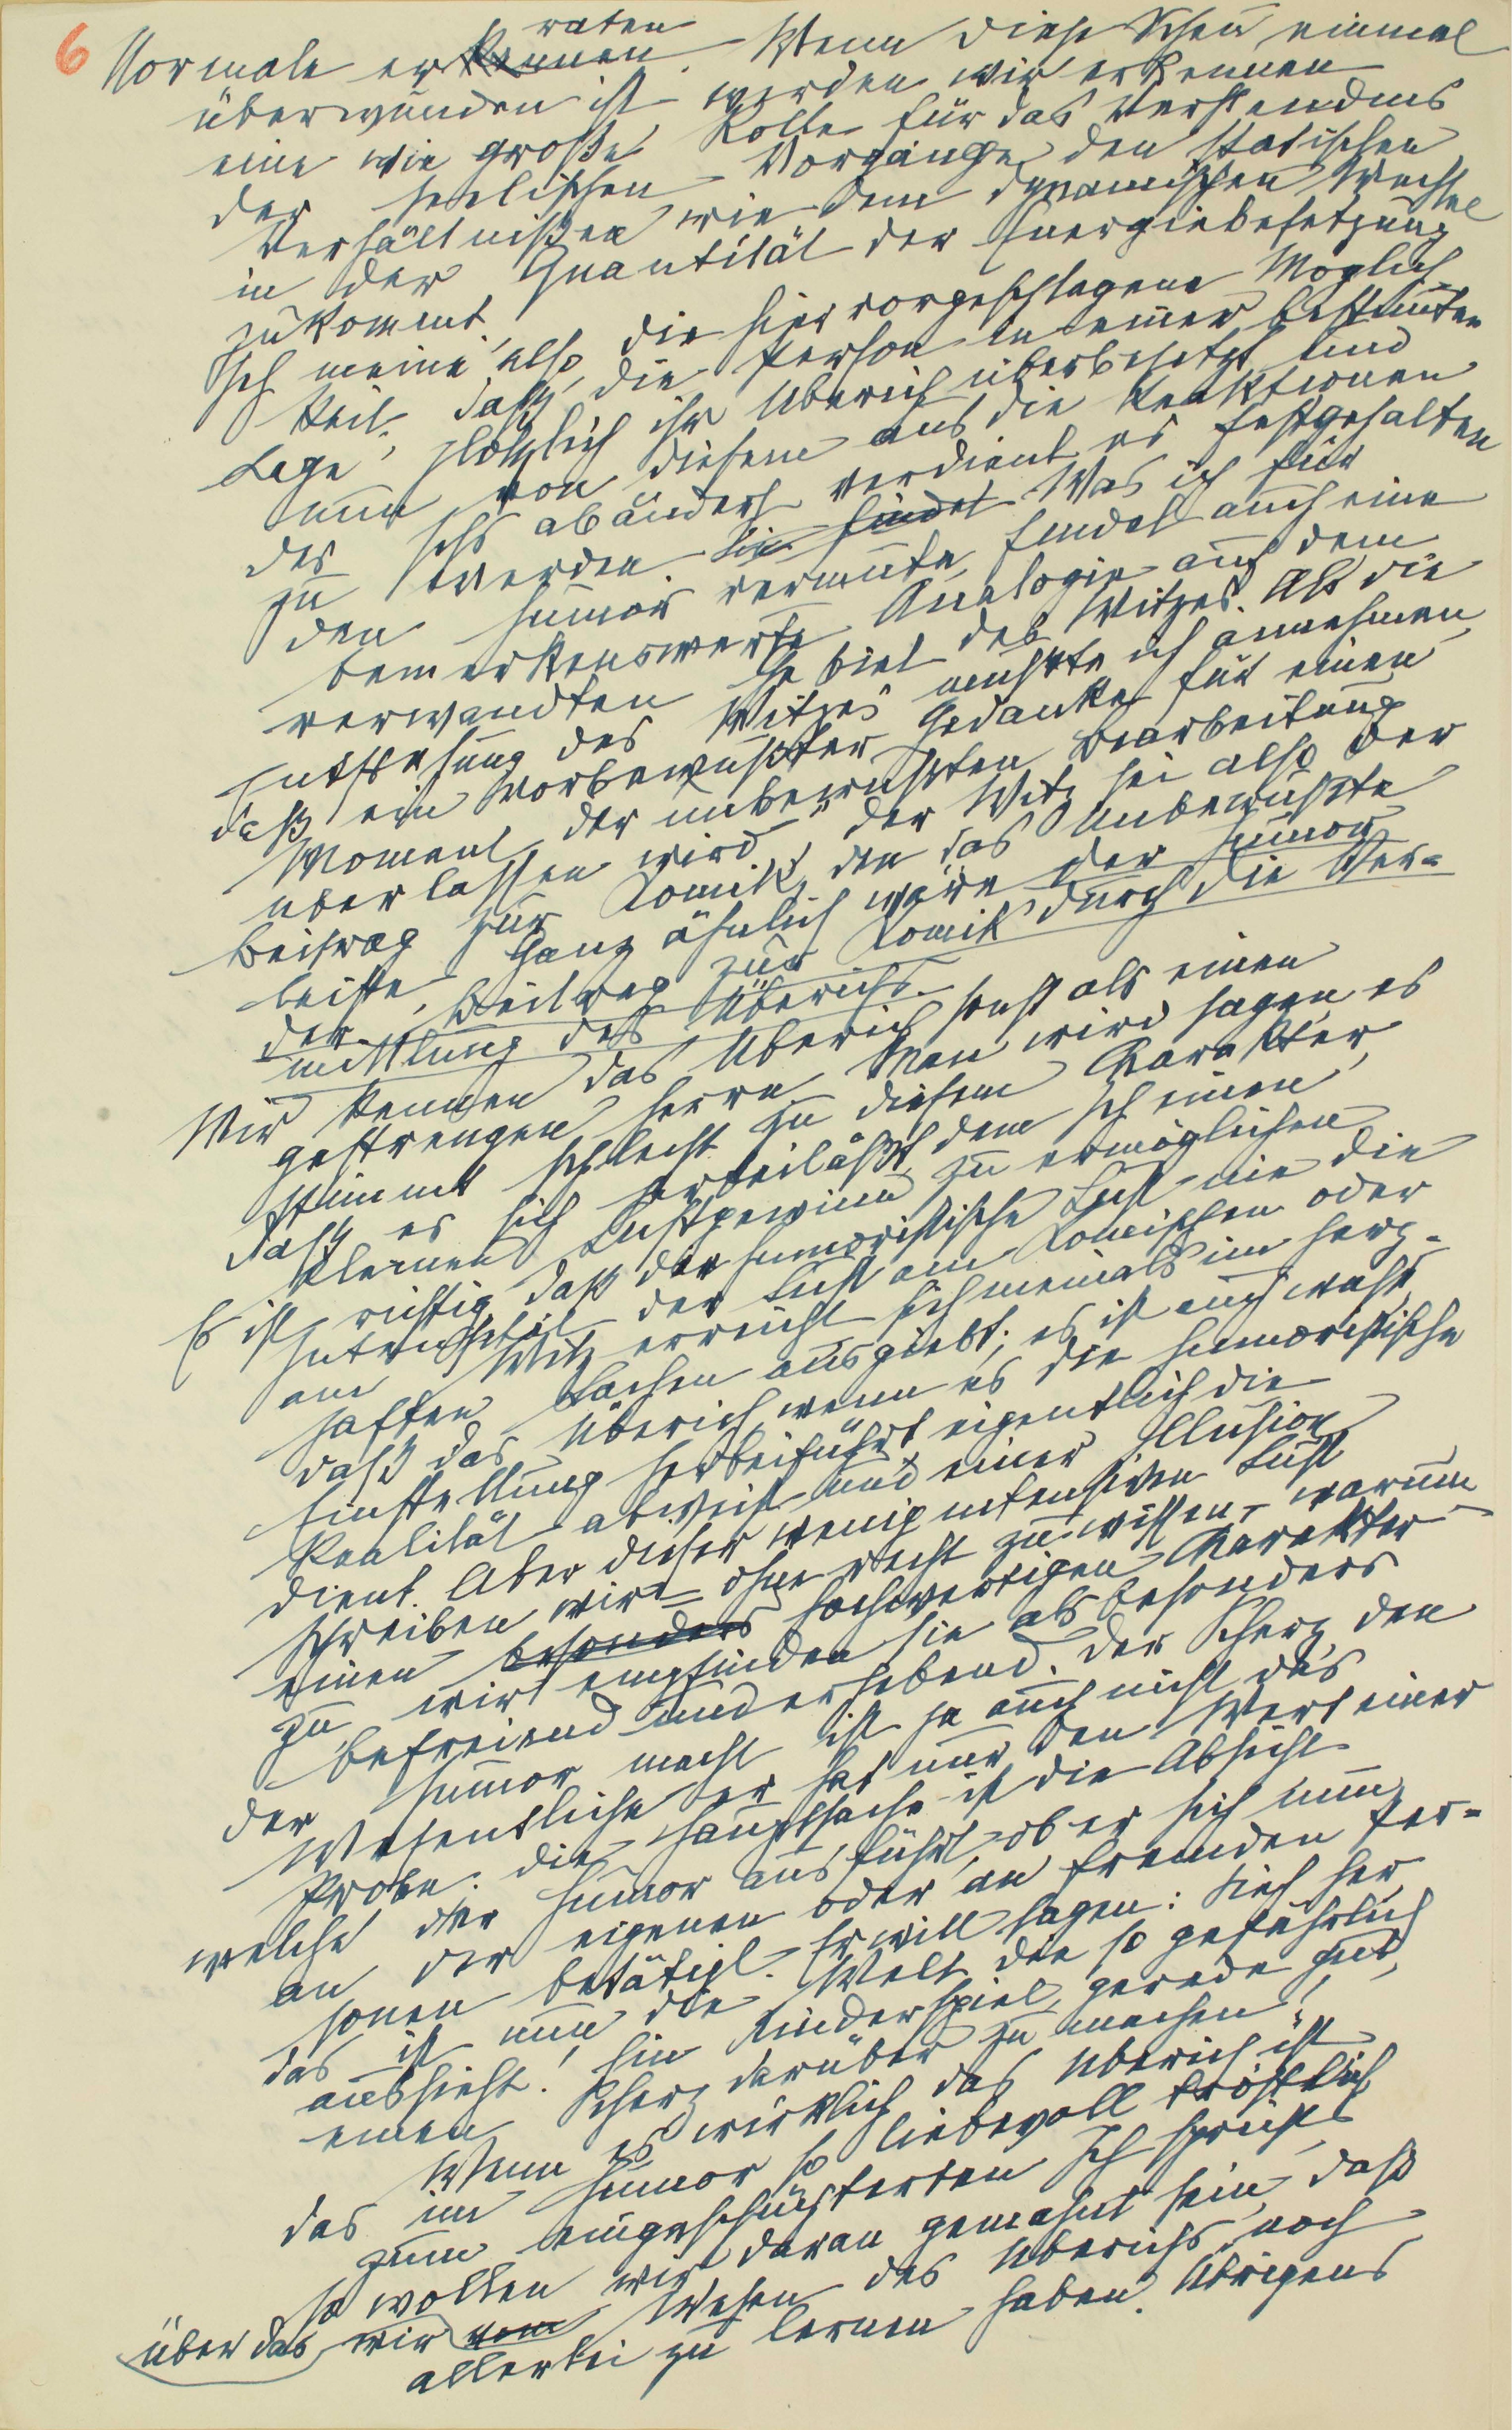 6
raten
Normale er kennen. Wenn diese Scheu einmal
überwunden ist, werden wir erkennen
eine wie große Rolle für das Verständnis
der seelischen Vorgänge den statischen
Verhältnißen wie dem dynamischen Wechsel
in der Quantität der Energiebesetzung
zukommt.
Ich meine also, die hier vorgeschlagene Möglich
keit, daß die Person in einer bestimten
Lage plötzlich ihr Überich überbesetzt und
nun von diesem aus die Reaktionen
des Ichs abändert verdient es festgehalten
zu werden. Sie findet Was ich für
den Humor vermute, findet auch eine
bemerkenswerte Analogie auf dem
verwandten Gebiet des Witzes. Als die
Entstehung des Witzes mußte ich annehmen,
daß ein vorbewußter Gedanke für einen
Moment der unbewußten Bearbeitung
überlassen wird, der Witz sei also der
Beitrag zur Komik, den das Unbewußte
leiste. Ganz ähnlich wäre der Humor
der Beitrag zur Komik durch die Ver-
mittlung des Überichs.
Wir kennen das Überich sonst als einen
gestrengen Herrn. Man wird sagen, es
stimmt schlecht zu diesem Charakter,
daß es sich herbeiläßt, dem Ich einen
kleinen Lustgewinn zu ermöglichen.
Es ist richtig, daß die humoristische Lust nie die
Intensität der Lust am Komischen oder
am Witz erreicht, sich niemals im herz-
haften Lachen ausgiebt; es ist auch wahr,
daß das Überich, wenn es die humoristische
Einstellung herbeiführt, eigentlich die
Realität abweist und einer Illusion
dient. Aber dieser wenig intensiven Lust
schreiben wir – ohne recht zu wissen, warum –
einen besonders hochwertigen Charakter
zu, wir empfinden sie als besonders
befreiend und erhebend. Der Scherz, den
der Humor macht, ist ja auch nicht das
Wesentliche, er hat nur den Wert einer
Probe; die Hauptsache ist die Absicht
welche der Humor ausführt, ob er sich nun
an der eigenen oder an fremden Per-
sonen betätigt. Er will sagen: Sieh her,
das ist nun die Welt, die so gefährlich
aussieht! Ein Kinderspiel, gerade gut,
einen Scherz darüber zu machen!
Wenn es wirklich das Überich ist
das im Humor so liebevoll tröstlich
zum eingeschüchterten Ich spricht,
so wollen wir daran gemahnt sein, daß
über das wir vom Wesen des Überichs noch
allerlei zu lernen haben. Übrigens